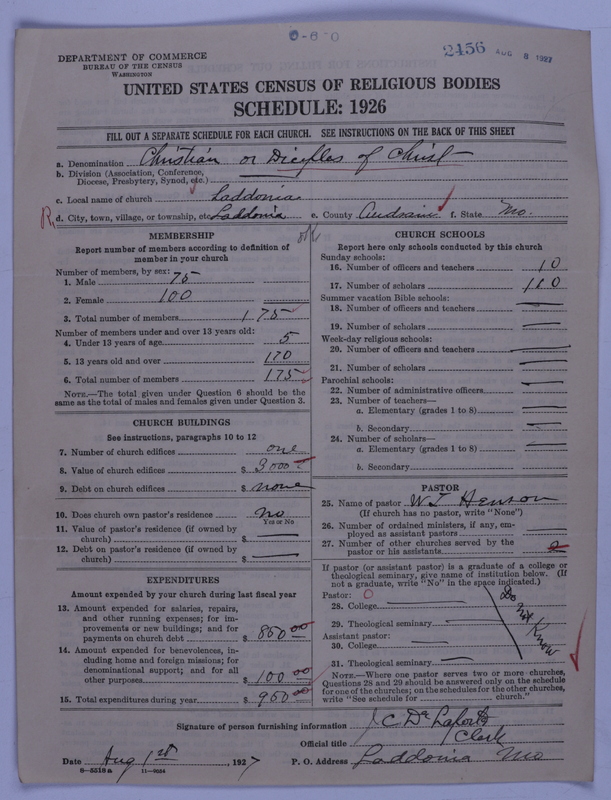 2456 AUG 8 1927
DEPARTMENT OF COMMERCE
BUREAU OF THE CENSUS
WASHINGTON
UNITED STATES CENSUS OF RELIGIOUS BODIES
SCHEDULE: 1926
FILL OUT A SEPARATE SCHEDULE FOR EACH CHURCH. SEE INSTRUCTIONS ON THE BACK OF THIS SHEET
a. Denomination Christian or Diciples of Christ
b. Division (Association, Conference,
Diocese, Presbytery, Synod, etc.)
c. Local name of church Laddonia
R d. City, town, village, or township, etc. Laddonia e. County Audrain f. State Mo.
MEMBERSHIP
Report number of members according to definition of
member in your church
Number of members, by sex:
1. Male 75
2. Female 100
3. Total number of members 175
Number of members under and over 13 years old:
4. Under 13 years of age 5
5. 13 years old and over 170
6. Total number of members 175
NOTE.—The total given under Question 6 should be
same as the total of males and females given under Question 3.
CHURCH BUILDINGS
See instructions, paragraphs 10 to 12
7. Number of church edifices one
8. Value of church edifices $ 3000
9. Debt on church edifices $ none
10. Does church own pastor's residence? No
Yes or No
11. Value of pastor's residence (if owned by
church) $
12. Debt on pastor's residence (if owned by
church) $
EXPENDITURES
Amount expended by your church during last fiscal year
13. Amount expended for salaries, repairs,
and other running expenses; for im-
provements or new buildings; and for
payments on church debt $ 850 00
14. Amount expended for benevolences, in-
cluding home and foreign missions; for
denominational support; and for all
other purposes $ 100 00
15. Total expenditures during year $ 950 00
CHURCH SCHOOLS
Report here only schools conducted by this church
Sunday schools:
16. Number of officers and teachers 10
17. Number of scholars 110
Summer vacation Bible schools:
18. Number of officers and teachers
19. Number of scholars
Week-day religious schools:
20. Number of officers and teachers
21. Number of scholars
Parochial schools:
22. Number of administrative officers
23. Number of teachers—
a. Elementary (grades 1 to 8)
b. Secondary
24. Number of scholars—
a. Elementary (grades 1 to 8)
b. Secondary
PASTOR
25. Name of pastor W T Henson
(If church has no pastor, write "None")
26. Number of ordained ministers, if any, em-
ployed as assistant pastors
27. Number of other churches served by the
pastor or his assistants
If pastor (or assistant pastor) is a graduate of a college or
theological seminary, give name of institution below. (If
not a graduate, write "No" in the space indicated.)
Pastor: 0
28. College
29. Theological seminary
Do not Know
Assistant pastor:
30. College
31. Theological seminary
NOTE.—Where one pastor serves two or more churches,
Questions 28 and 29 should be answered only on the schedule
for one of the churches; on the schedules for the other churches,
write "See schedule for church."
Signature of person furnishing information J C De Laporte
Official title Clerk
Date Aug 1st, 1927 P. O. Address Laddonia Mo
8—5518a 11—9054